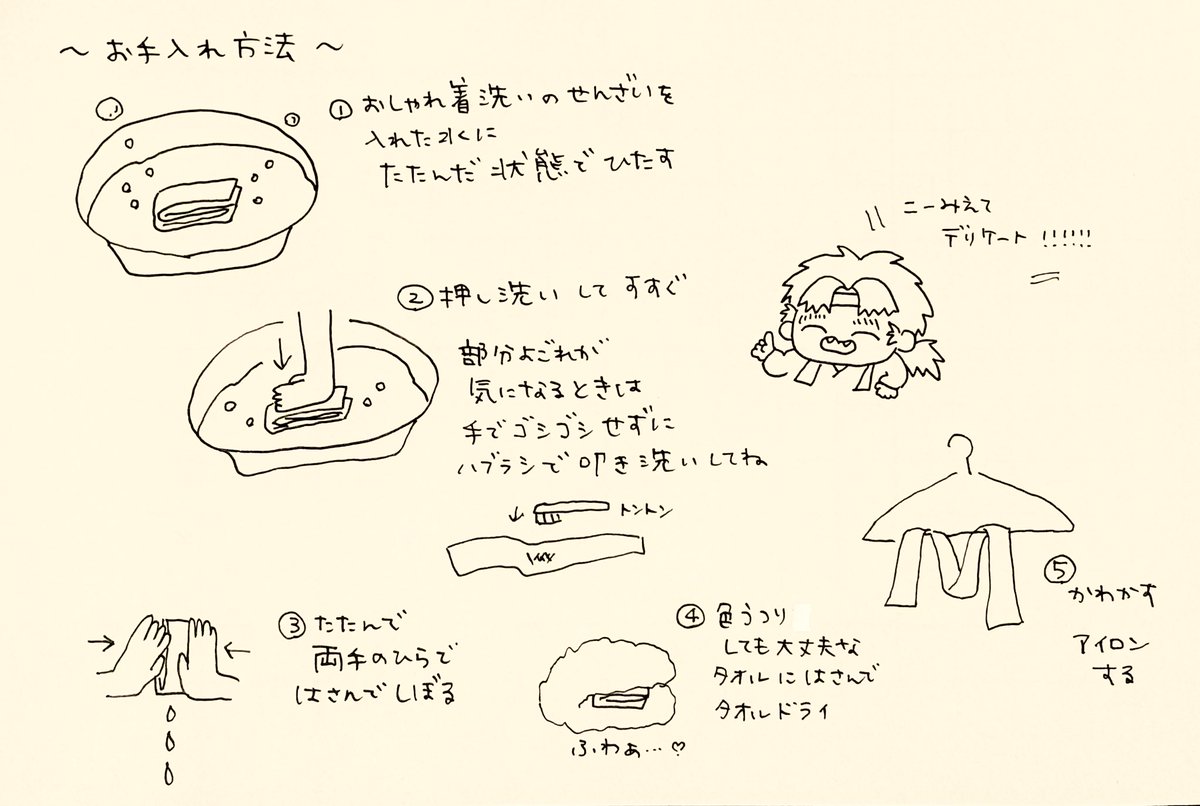 ～お手入れ方法～
① おしゃれ着洗いのせんざいを
入れた水に
たたんだ状態でひたす
こーみえて
デリケート!!!!!!
② 押し洗いしてすすぐ
部分よごれが
気になるときは
手でゴシゴシせずに
ハブラシで叩き洗いしてね
トントン
③ たたんで
両手のひらで
はさんでしぼる
④ 色うつり
しても大丈夫な
タオルにはさんで
タオルドライ
ふわぁ…♡
⑤ かわかす
アイロン
する